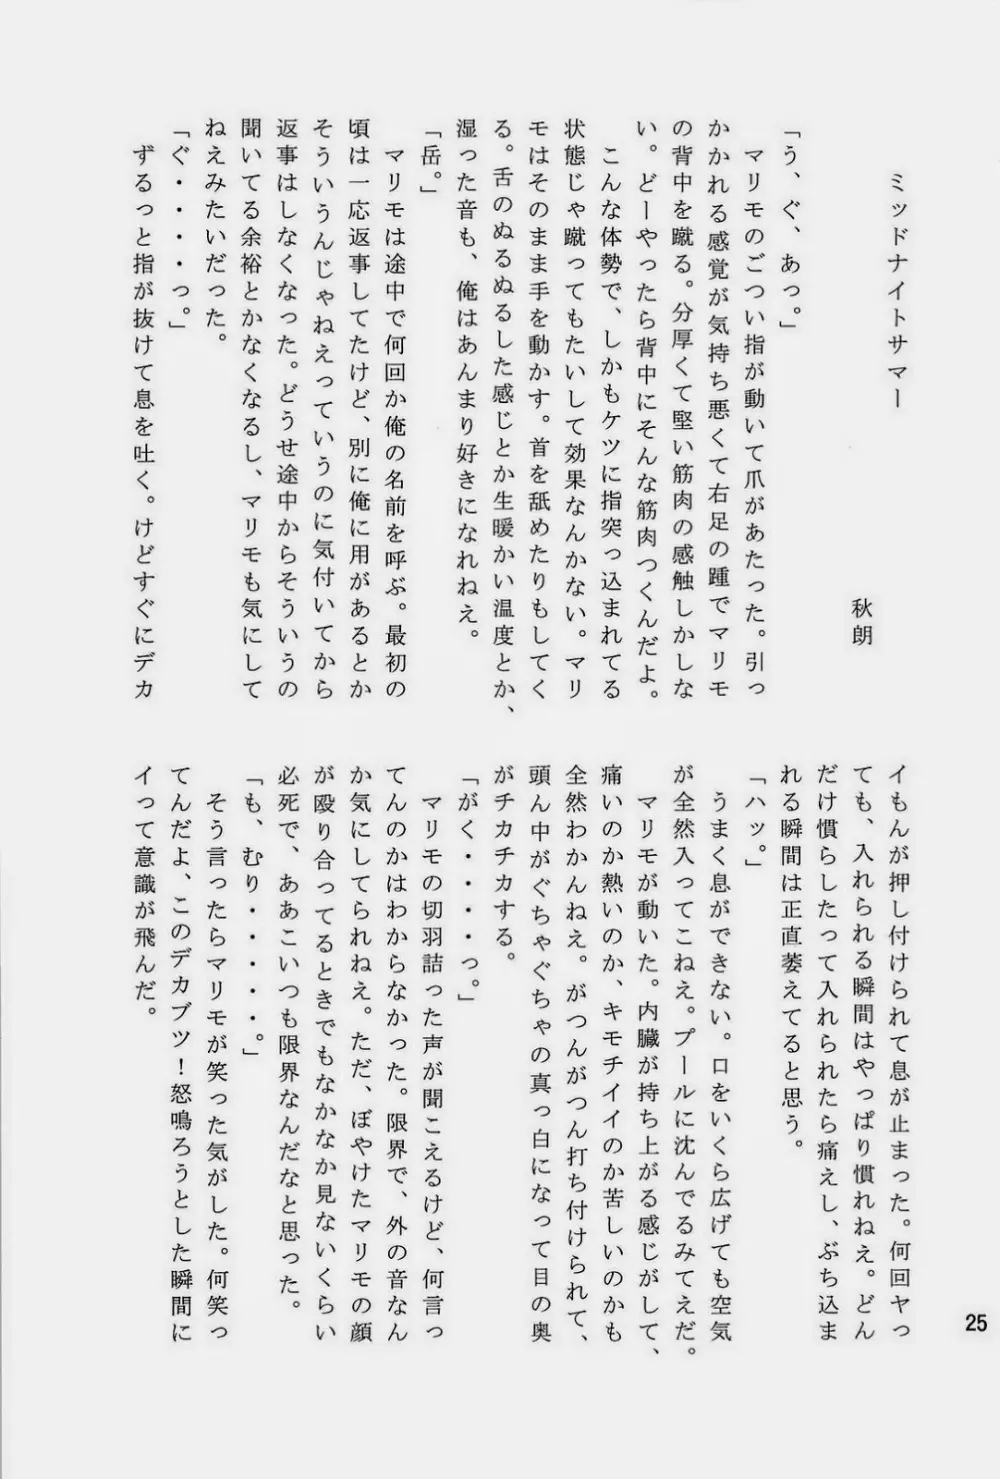 ミッドナイトサマー
秋朗
「う、ぐ、あっ。」
マリモのごつい指が動いて爪があたった。引っ
かかれる感覚が気持ち悪くて右足の踵でマリモ
の背中を蹴る。分厚くて堅い筋肉の感触しかしな
い。どーやったら背中にそんな筋肉つくんだよ。
こんな体勢で、しかもケツに指突っ込まれてる
状態じゃ蹴ってもたいして効果なんかない。マリ
モはそのまま手を動かす。首を舐めたりもしてく
る。舌のぬるぬるした感じとか生暖かい温度とか、
湿った音も、俺はあんまり好きになれねえ。
「岳。」
マリモは途中で何回か俺の名前を呼ぶ。最初の
頃は一応返事してたけど、別に俺に用があるとか
そういうんじゃねえっていうのに気付いてから
返事はしなくなった。どうせ途中からそういうの
聞いてる余裕とかなくなるし、マリモも気にして
ねえみたいだった。
「ぐ・・・・っ。」
ずるっと指が抜けて息を吐く。けどすぐにデカ
イもんが押し付けられて息が止まった。何回ヤっ
ても、入れられる瞬間はやっぱり慣れねえ。どん
だけ慣らしたって入れられたら痛えし、ぶち込ま
れる瞬間は正直萎えてると思う。
「ハッ。」
うまく息ができない。口をいくら広げても空気
が全然入ってこねえ。プールに沈んでるみてえだ。
マリモが動いた。内臓が持ち上がる感じがして、
痛いのか熱いのか、キモチイイのか苦しいのかも
全然わかんねえ。がつんがつん打ち付けられて、
頭ん中がぐちゃぐちゃの真っ白になって目の奥
がチカチカする。
「がく・・・・っ。」
マリモの切羽詰った声が聞こえるけど、何言っ
てんのかはわからなかった。限界で、外の音なん
か気にしてられねえ。ただ、ぼやけたマリモの顔
が殴り合ってるときでもなかなか見ないくらい
必死で、ああこいつも限界なんだなと思った。
「も、むり・・・・・。」
そう言ったらマリモが笑った気がした。何笑っ
てんだよ、このデカブツ！怒鳴ろうとした瞬間に
イって意識が飛んだ。
25